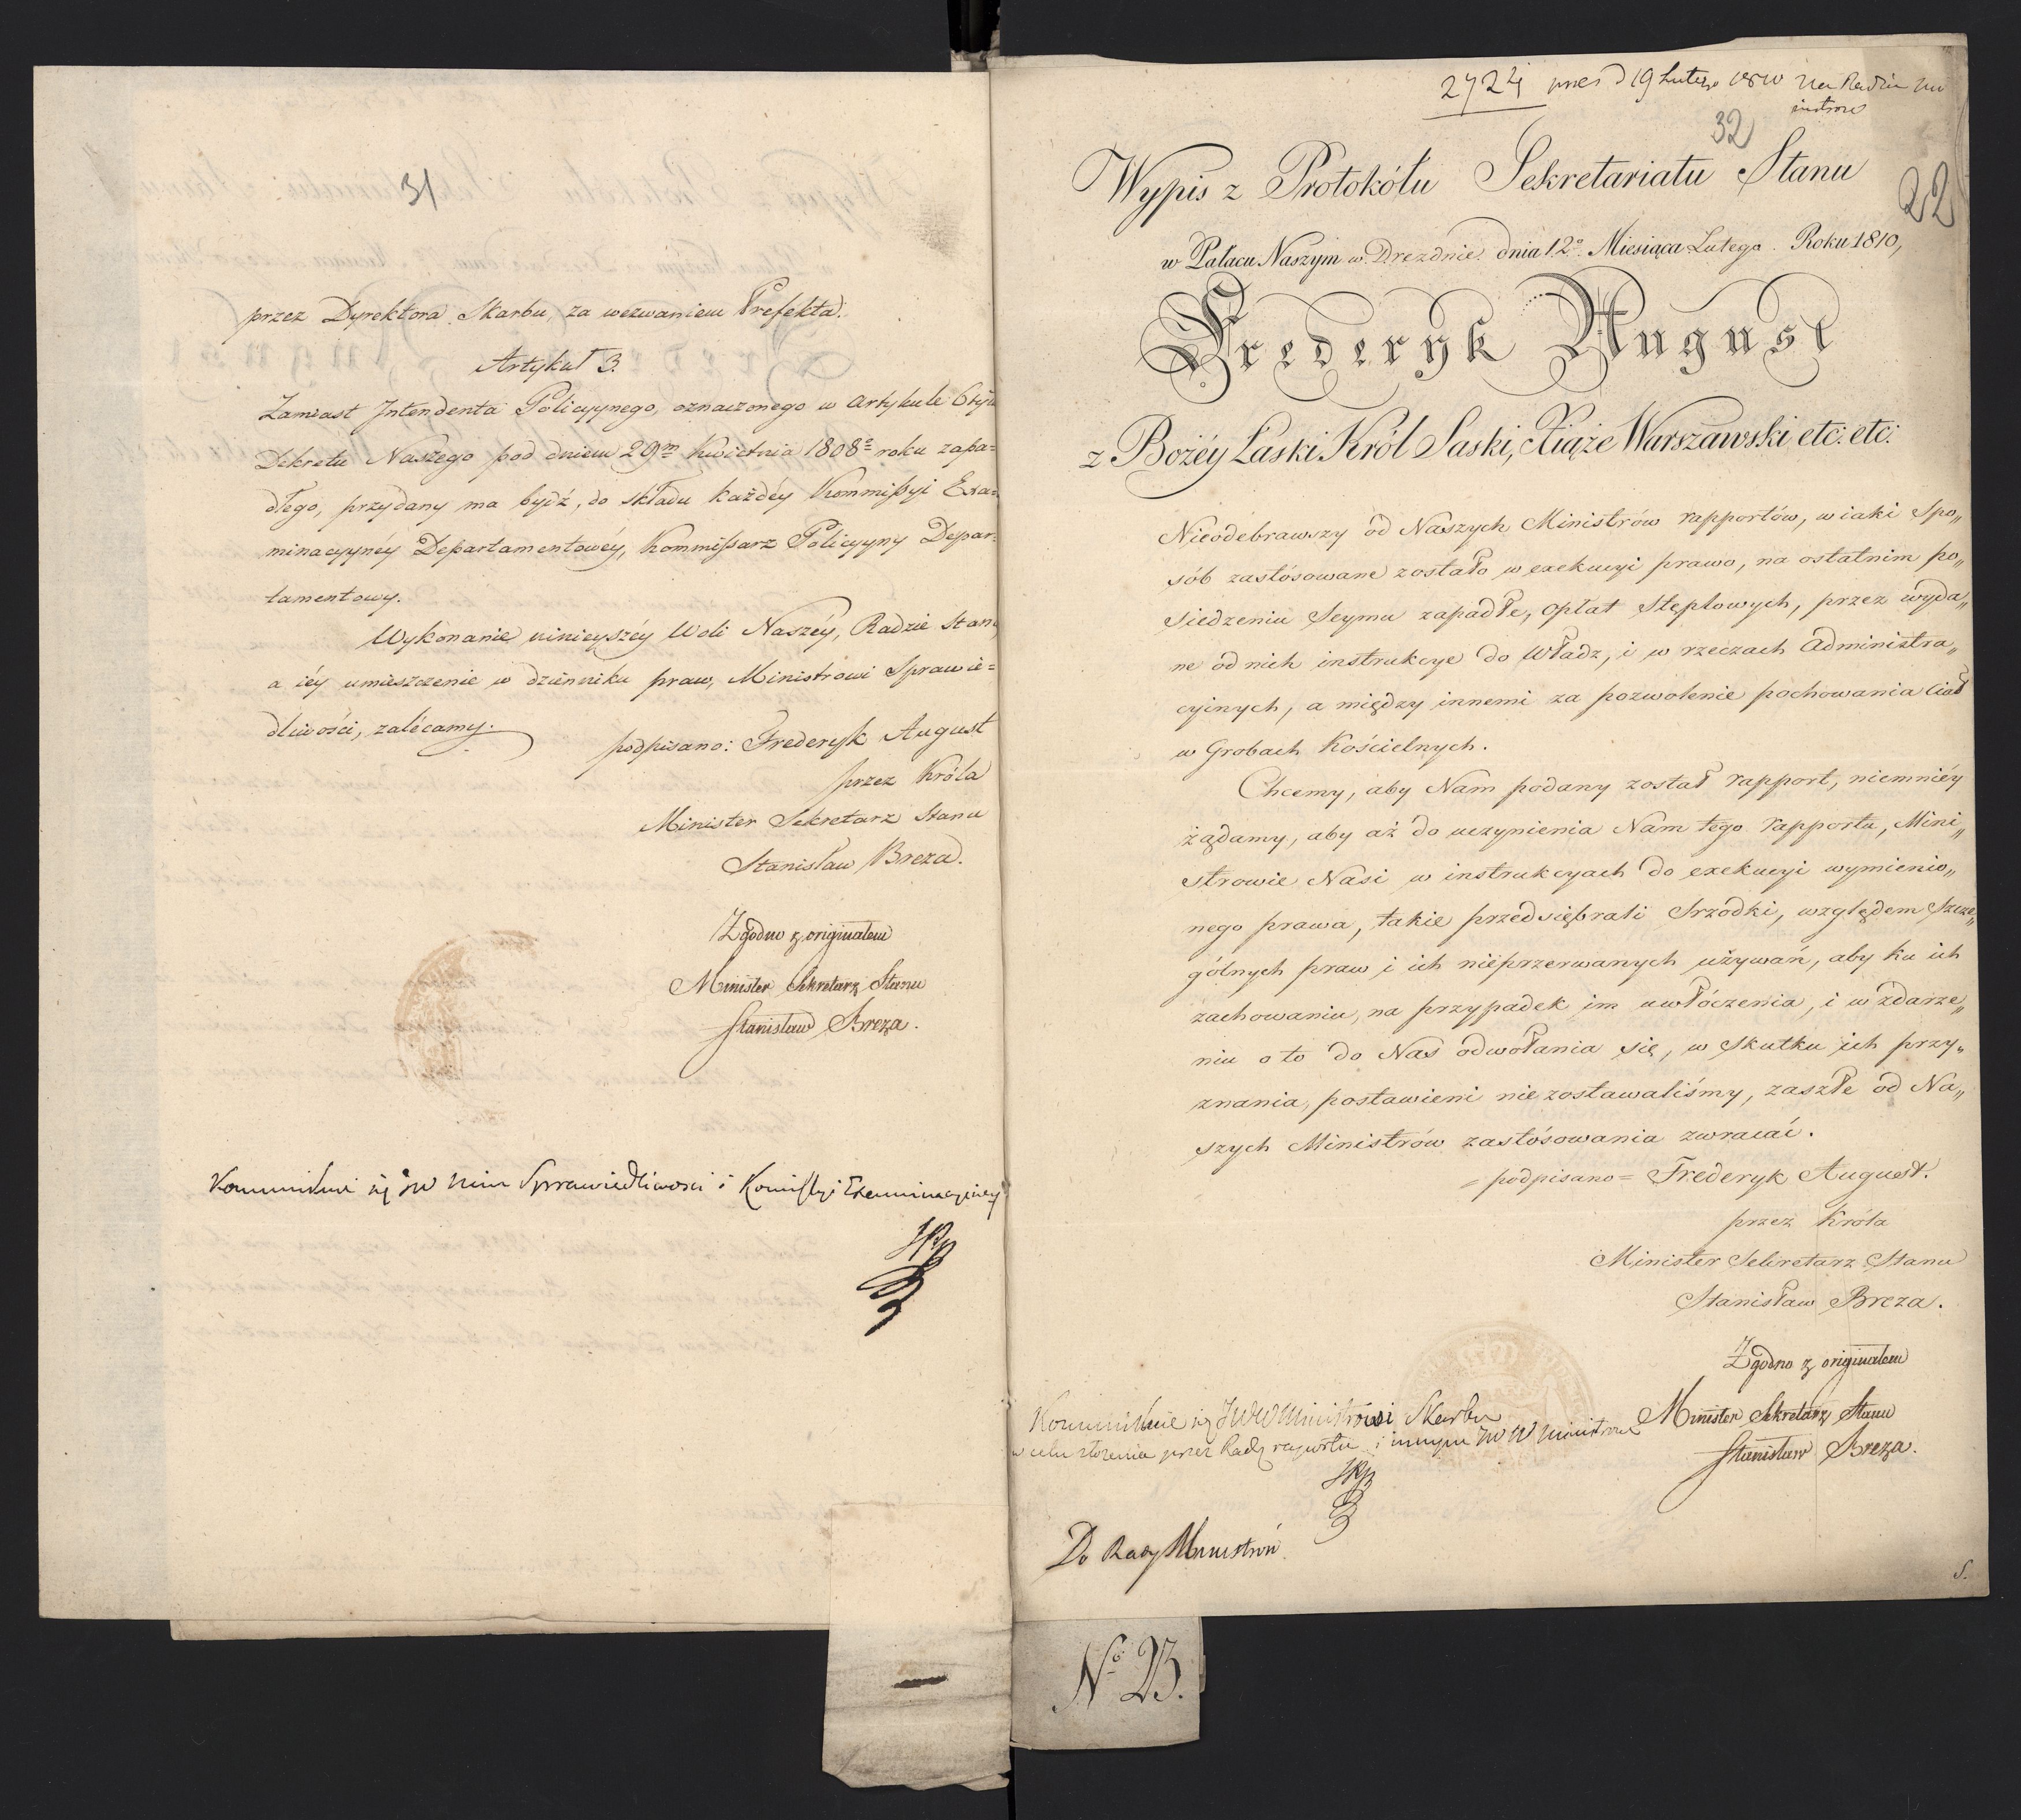 31
przez Dyrektora Skarbu, za wezwaniem Prefekta.
Artykuł 3.
Zamiast Intendenta Policyynego, oznaczonego w Artykule
Dekretu Naszego pod dniem 29m Kwietnia 1808o roku zapa=
dłego, przydany ma bydź, do składu każdéy Kommißyi Exa=
minacyynéy Departamentowéy, Kommißarz Policyyny Depar=
tamentowy.
Wykonanie ninieyszéy Woli Naszéy, Radzie Stanu
a iéy umieszczenie w dzienniku praw, Ministrowi Sprawie=
dliwości, zalécamy.
podpisano: Frederyk August
przez Króla
Minister Sekretarz Stanu
Stanisław Breza.
Zgodno z originałem
Minister Sekretarz Stanu
Stanisław Breza.
się JW Min Sprawiedliwosci i Komißyi Examinacyiney
2724 pres d 19 Lutego 1810 na Radzie Mi
nistrow
32
22
Wypis z Protokółu Sekretariatu Stanu
w Pałacu Naszym w Dreznie dnia 12o Miesiąca Lutego Roku 1810,
Frederyk August
z Bożéy Łaski Król Saski, Xiąże Warszawski etc: etc:
Nieodebrawszy od Naszych Ministrów rapportów, w iaki Spo„
sób zastósowane zostało w exekucyi prawo, na ostatnim po„
siedzeniu Seymu zapadłe, opłat Stęplowych, przez wyda„
ne od nich instrukcye do Władz, i w rzeczach administra„
cyinych, a między innemi za pozwolenie pochowania Ciał
w Grobach Kościelnych.
Chcemy, aby Nam podany został rapport, niemniéy
żądamy, aby aż do uczynienia Nam tego rapportu, Mini„
strowie Nasi w instrukcyach do exekucyi wymienio„
nego prawa, takie przedsiębrali Srzodki, względem Szcze„
gólnych praw i ich nieprzerwanych używań, aby ku ich
zachowaniu, na przypadek im uwłóczenia, i w zdarze„
niu o to do Nas odwołania się, w skutku ich przy„
znania, postawieni nie zostawaliśmy, zaszłe od Na„
szych Ministrów zastósowania zwracać.
= podpisano = Frederyk August.
przez Króla
Minister Sekretarz Stanu
Stanisław Breza.
Zgodno z originałem
Minister Sekretarz Stanu
Stanisław Breza.
się JWW Ministrowi Skarbu
w celu złożenia przez Radę raportu i innym JWW Ministrow
Do Rady Ministrów
S.
No 23.